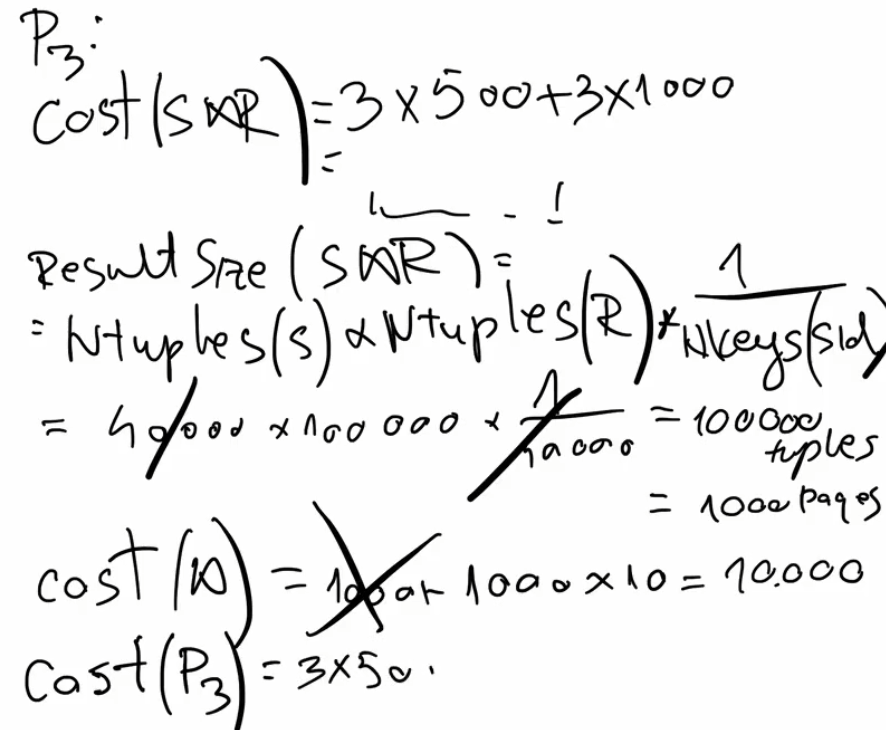 P3:
Cost(S⋈R) = 3 × 500 + 3 × 1000
=
Result Size (S⋈R) =
= Ntuples(S) × Ntuples(R) * 1/Nkeys(Sid)
= 40000 × 100 000 × 1/40000 = 100000 tuples
= 1000 Pages
cost(⋈) = 1000 + 1000 × 10 = 10.000
Cost(P3) = 3×50.